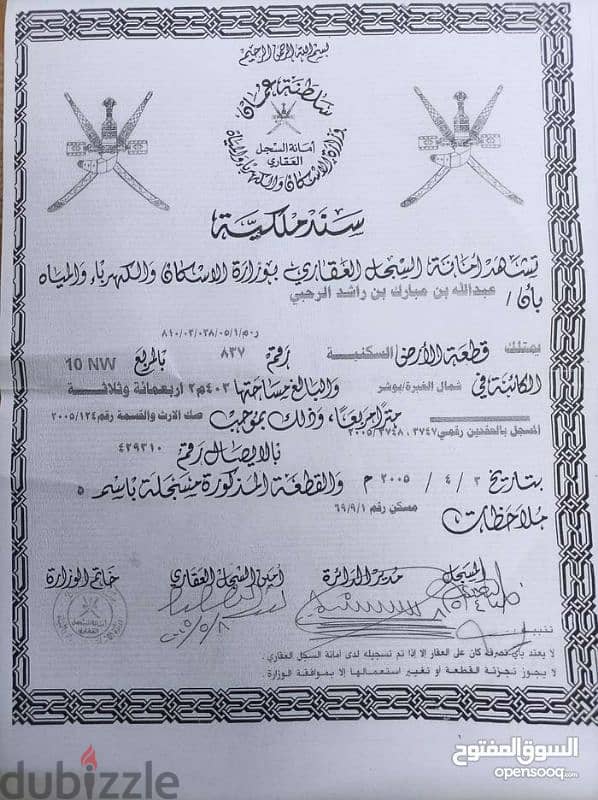 بسم الله الرحمن الرحيم
سلطنة عمان
وزارة الاسكان والكهرباء والمياه
أمانة السجل
العقاري
سند ملكية
تشهد أمانة السجل العقاري بوزارة الاسكان والكهرباء والمياه
بأن / عبدالله بن مبارك بن راشد الرحبي
ر٠م/٨١٠/٠٣/٠٣٨/٠٥/١
يمتلك قطعة الأرض السكنية رقم ٨٣٧ بالمربع 10 NW
الكائنة في شمال الغبرة/بوشر والبالغ مساحتها ٤٠٣م٢ أربعمائة وثلاثة
متراً مربعاً، وذلك بموجب صك الارث والقسمة رقم ٢٠٠٥/١٢٤
المسجل بالعقدين رقمي ٣٧٤٧ ، ٢٠٠٥/٣٧٤٨
بالايصال رقم ٤٢٩٣١٠
بتاريخ ٢ / ٤ / ٢٠٠٥ م والقطعة المذكورة مسجلة باسم ٥
ملاحظات مسكن رقم ٦٩/٩/١
المسجل مدير الدائرة أمين السجل العقاري خاتم الوزارة
أمانة السجل
العقاري
٢٠٠٥/٥/٨
تنبيه
لا يعتد بأي تصرف كان على العقار إلا إذا تم تسجيله لدى أمانة السجل العقاري .
لا يجوز تجزئة القطعة أو تغيير استعمالها إلا بموافقة الوزارة .
السوق المفتوح
opensooq.com
dubizzle